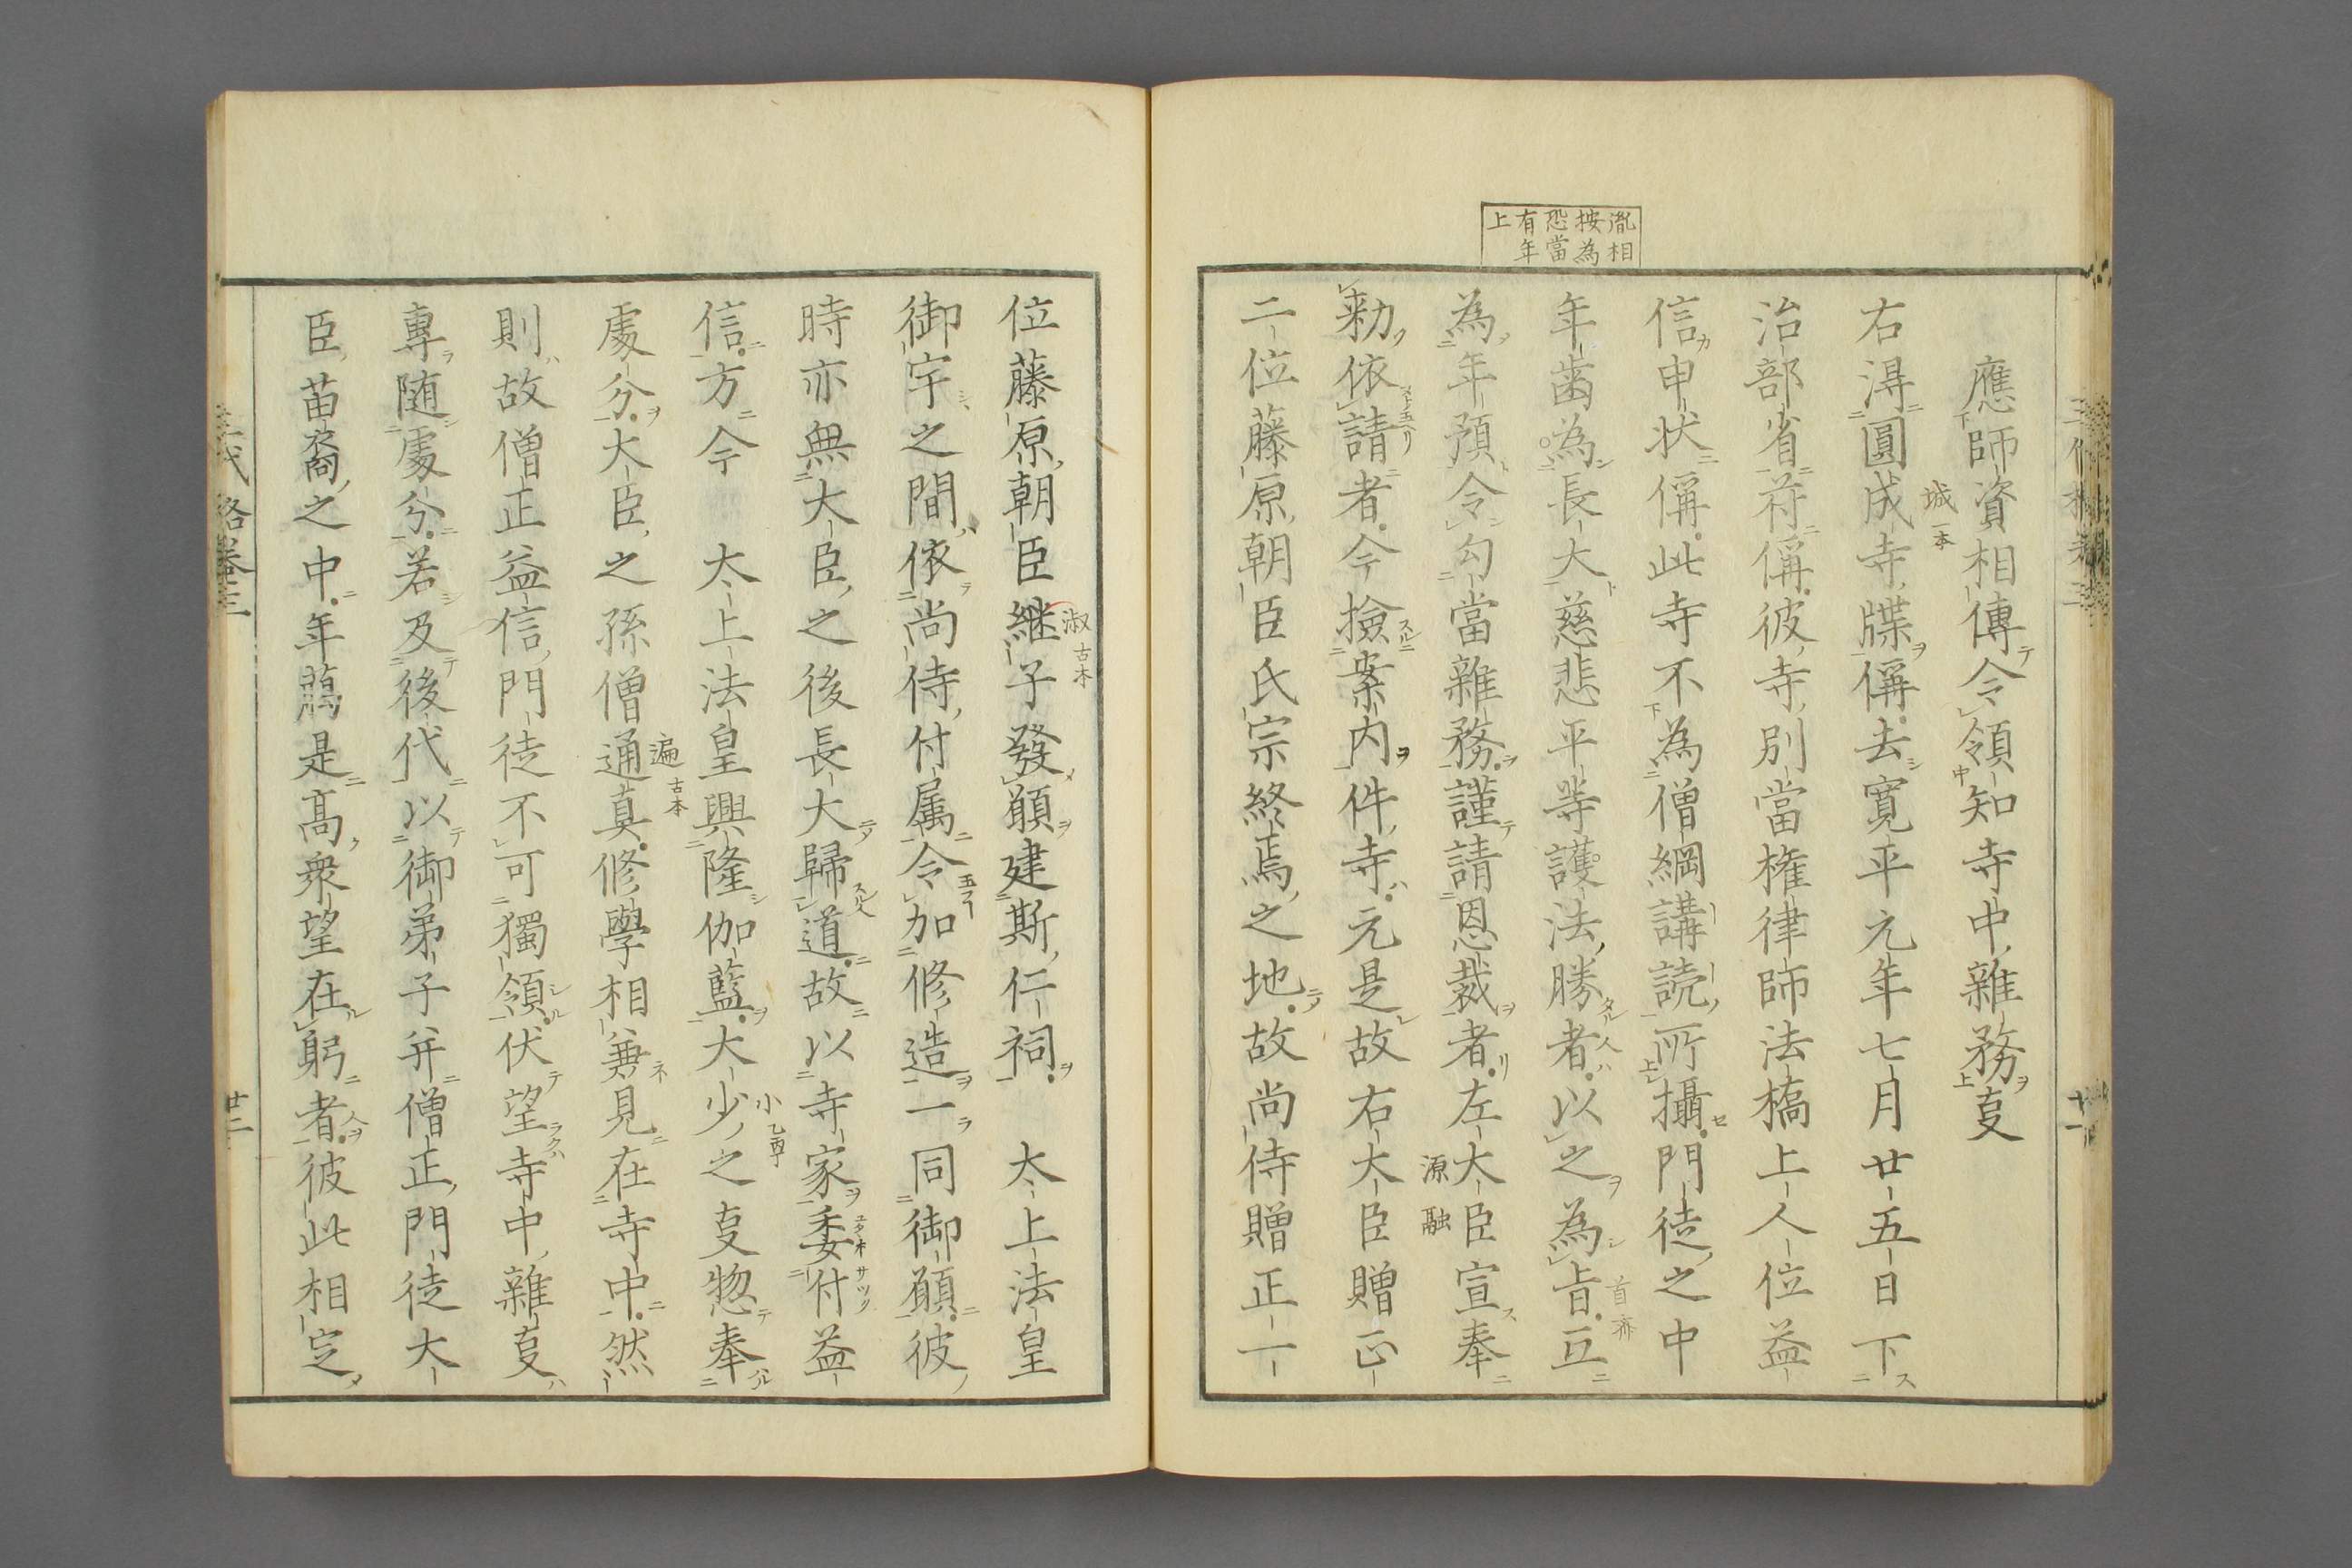 胤相
按為
恐當
有年
上
應師資相傳令領知寺中雜務㕝
右淂圓成寺牒偁去寛平元年七月廿五日下
城一本
治部省符偁彼寺別當権律師法橋上人位益
信申状偁此寺不為僧綱講読所攝門徒之中
年歯為長大慈悲平等護法勝者以之為㫖亙
首齊
為年預令勾當雜務謹請恩裁者左大臣宣奉
源融
勅依請者今撿案内件寺元是故右大臣贈正
二位藤原朝臣氏宗終焉之地故尚侍贈正一
位藤原朝臣継子發願建斯仁祠 太上法皇
淑古本
御宇之間依尚侍付属令加修造一同御願彼
時亦無大臣之後長大歸道故以寺家委付益
信方今 太上法皇興隆伽藍大少之㕝惣奉
小乙丙丁
處分大臣之孫僧通真修學相兼見在寺中然
遍古本
則故僧正益信門徒不可獨領伏望寺中雜㕝
專随處分若及後代以御弟子并僧正門徒大
臣苗裔之中年﨟是髙衆望在躬者彼此相定
三代格巻三
廿二